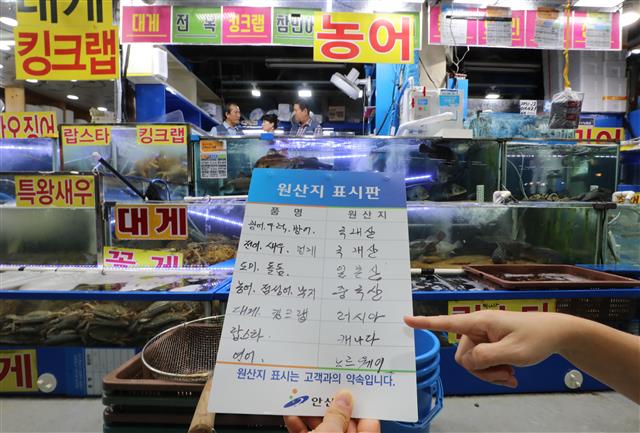 대게
킹크랩
대게
전복
킹크랩
참민어
농어
랍스타
킹크랩
특왕새우
대게
꽃게
원산지 표시판
품명 원산지
광어, 우럭, 방어, 국내산
전어, 새우, 꽃게 국내산
도미, 돌돔, 일본산
농어, 점성어, 낙지 중국산
대게, 킹크랩 러시아
랍스타. 캐나다
연어. 노르웨이
원산지 표시는 고객과의 약속입니다.
안산